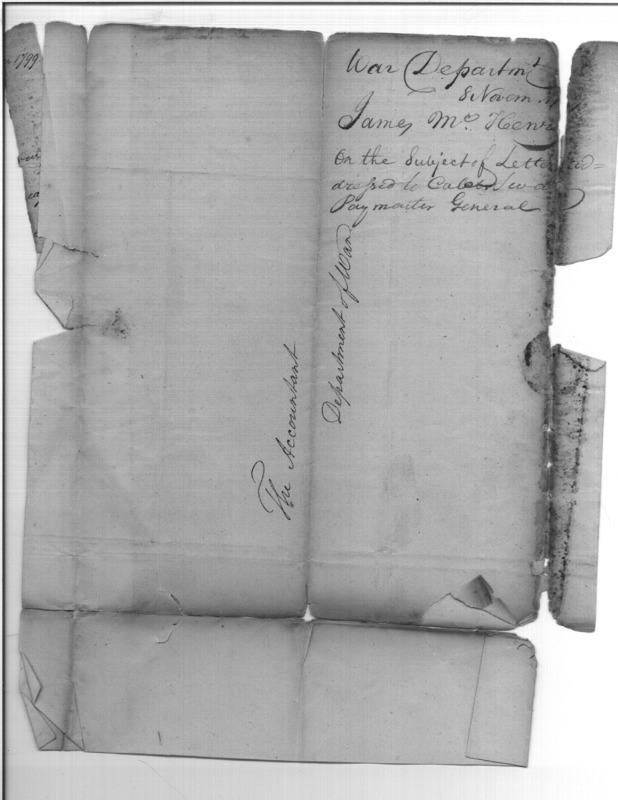 1799
War Departmt
8 Novem
James Mc Henry
On the Subject of Letter ad=
dressed to Caleb Swa
Paymaster General
The Accountant
Department of War